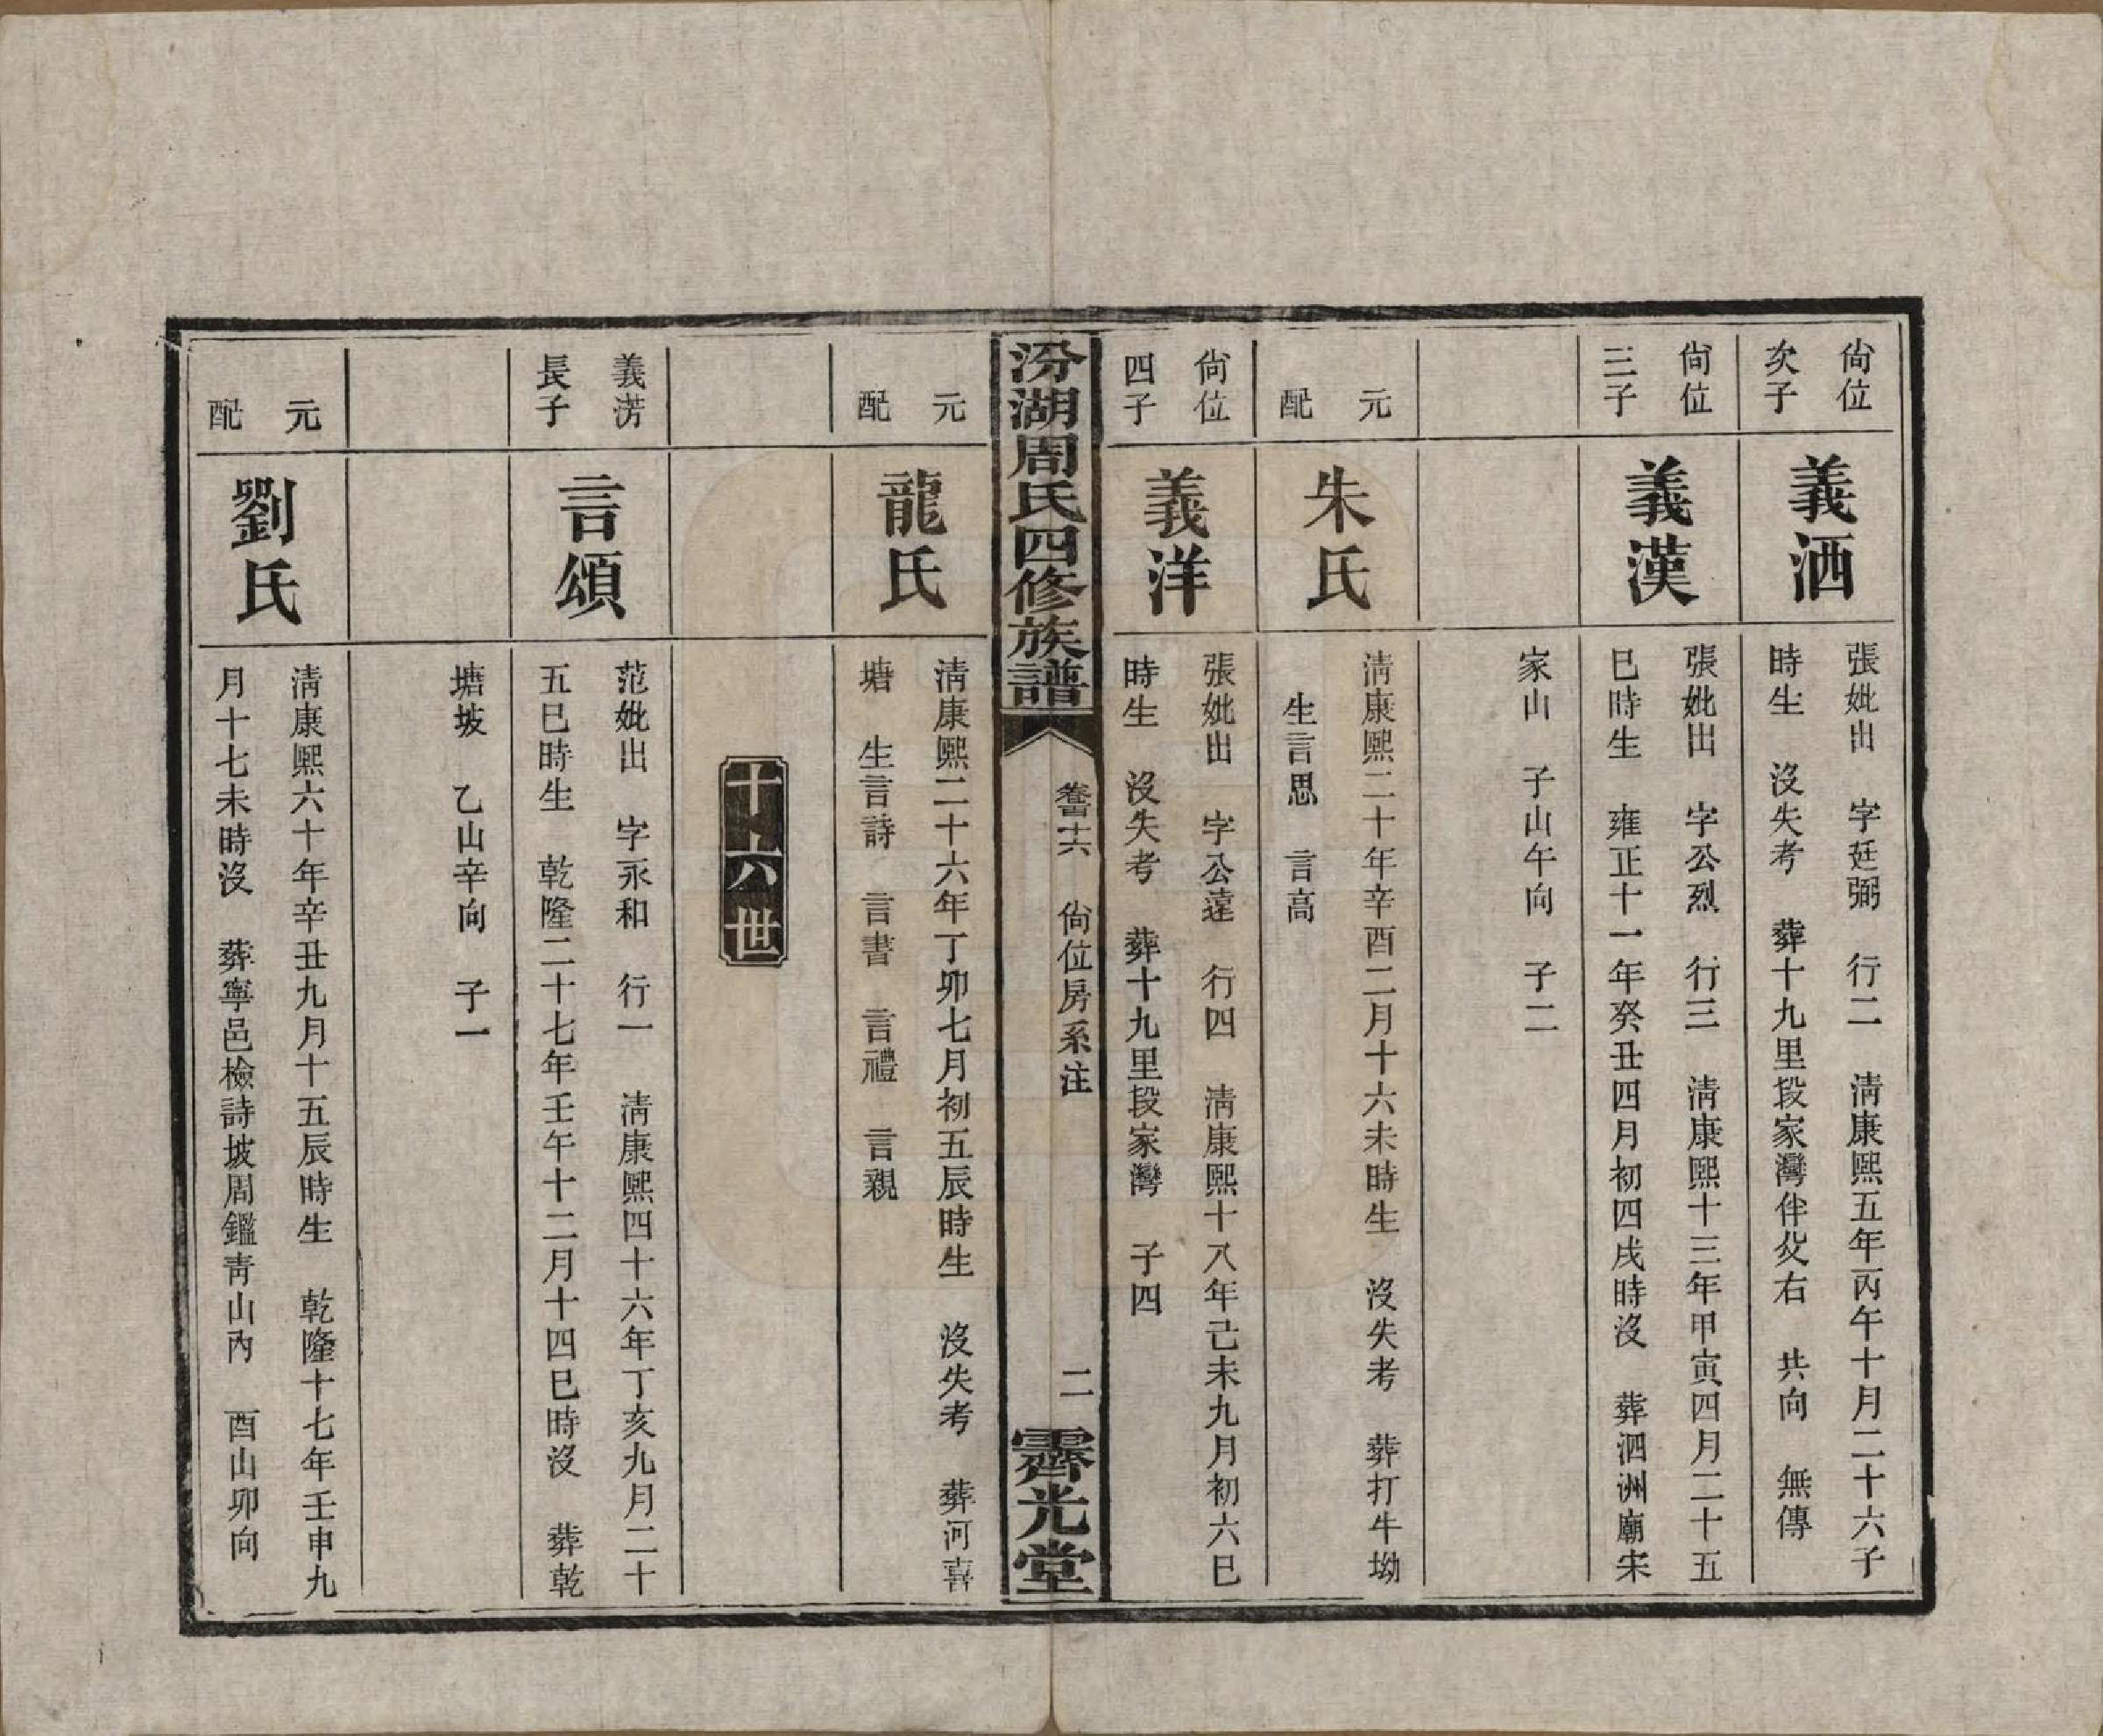 尙位
次子
義洒
張妣出　字廷弼　行二　淸康熙五年丙午十月二十六子
時生　沒失考　葬十九里段家灣伴父右　共向　無傳
尙位
三子
義漢
張妣出　字公烈　行三　淸康熙十三年甲寅四月二十五
巳時生　雍正十一年癸丑四月初四戌時沒　葬泗洲廟宋
家山　子山午向　子二
元
配
朱氏
淸康熙二十年辛酉二月十六未時生　沒失考　葬打牛坳
生言思　言高
尙位
四子
義洋
張妣出　字公遠　行四　淸康熙十八年己未九月初六巳
時生　沒失考　葬十九里段家灣　子四
汾湖周氏四修族譜
卷　尙位房系注
二
霽光堂
元
配
龍氏
淸康熙二十六年丁卯七月初五辰時生　沒失考　葬河喜
塘　生言詩　言書　言禮　言親
十六世
義淓
長子
言頌
范妣出　字永和　行一　淸康熙四十六年丁亥九月二十
五巳時生　乾隆二十七年壬午十二月十四巳時沒　葬乾
塘坡　乙山辛向　子一
元
配
劉氏
淸康熙六十年辛丑九月十五辰時生　乾隆十七年壬申九
月十七未時沒　葬寧邑檢詩坡周鑑靑山內　酉山卯向